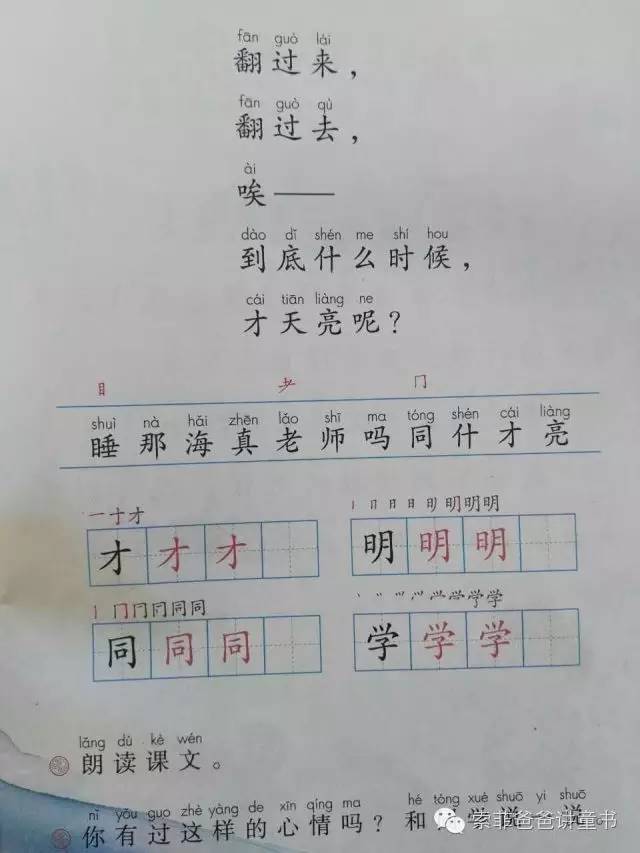 fān guò lái
翻过来，
fān guò qù
翻过去，
ài
唉——
dào dǐ shén me shí hou
到底什么时候，
cái tiān liàng ne
才天亮呢？
目 耂 冂
shuì nà hǎi zhēn lǎo shī ma tóng shén cái liàng
睡那海真老师吗同什才亮
一十才
才才才
明明明
明明明
同同
同同同
学学
学学学
lǎng dú kè wén
朗读课文。
nǐ yǒu guo zhè yàng de xīn qíng ma hé tóng xué shuō yi shuō
你有过这样的心情吗？和 学说 说
索菲爸爸讲童书